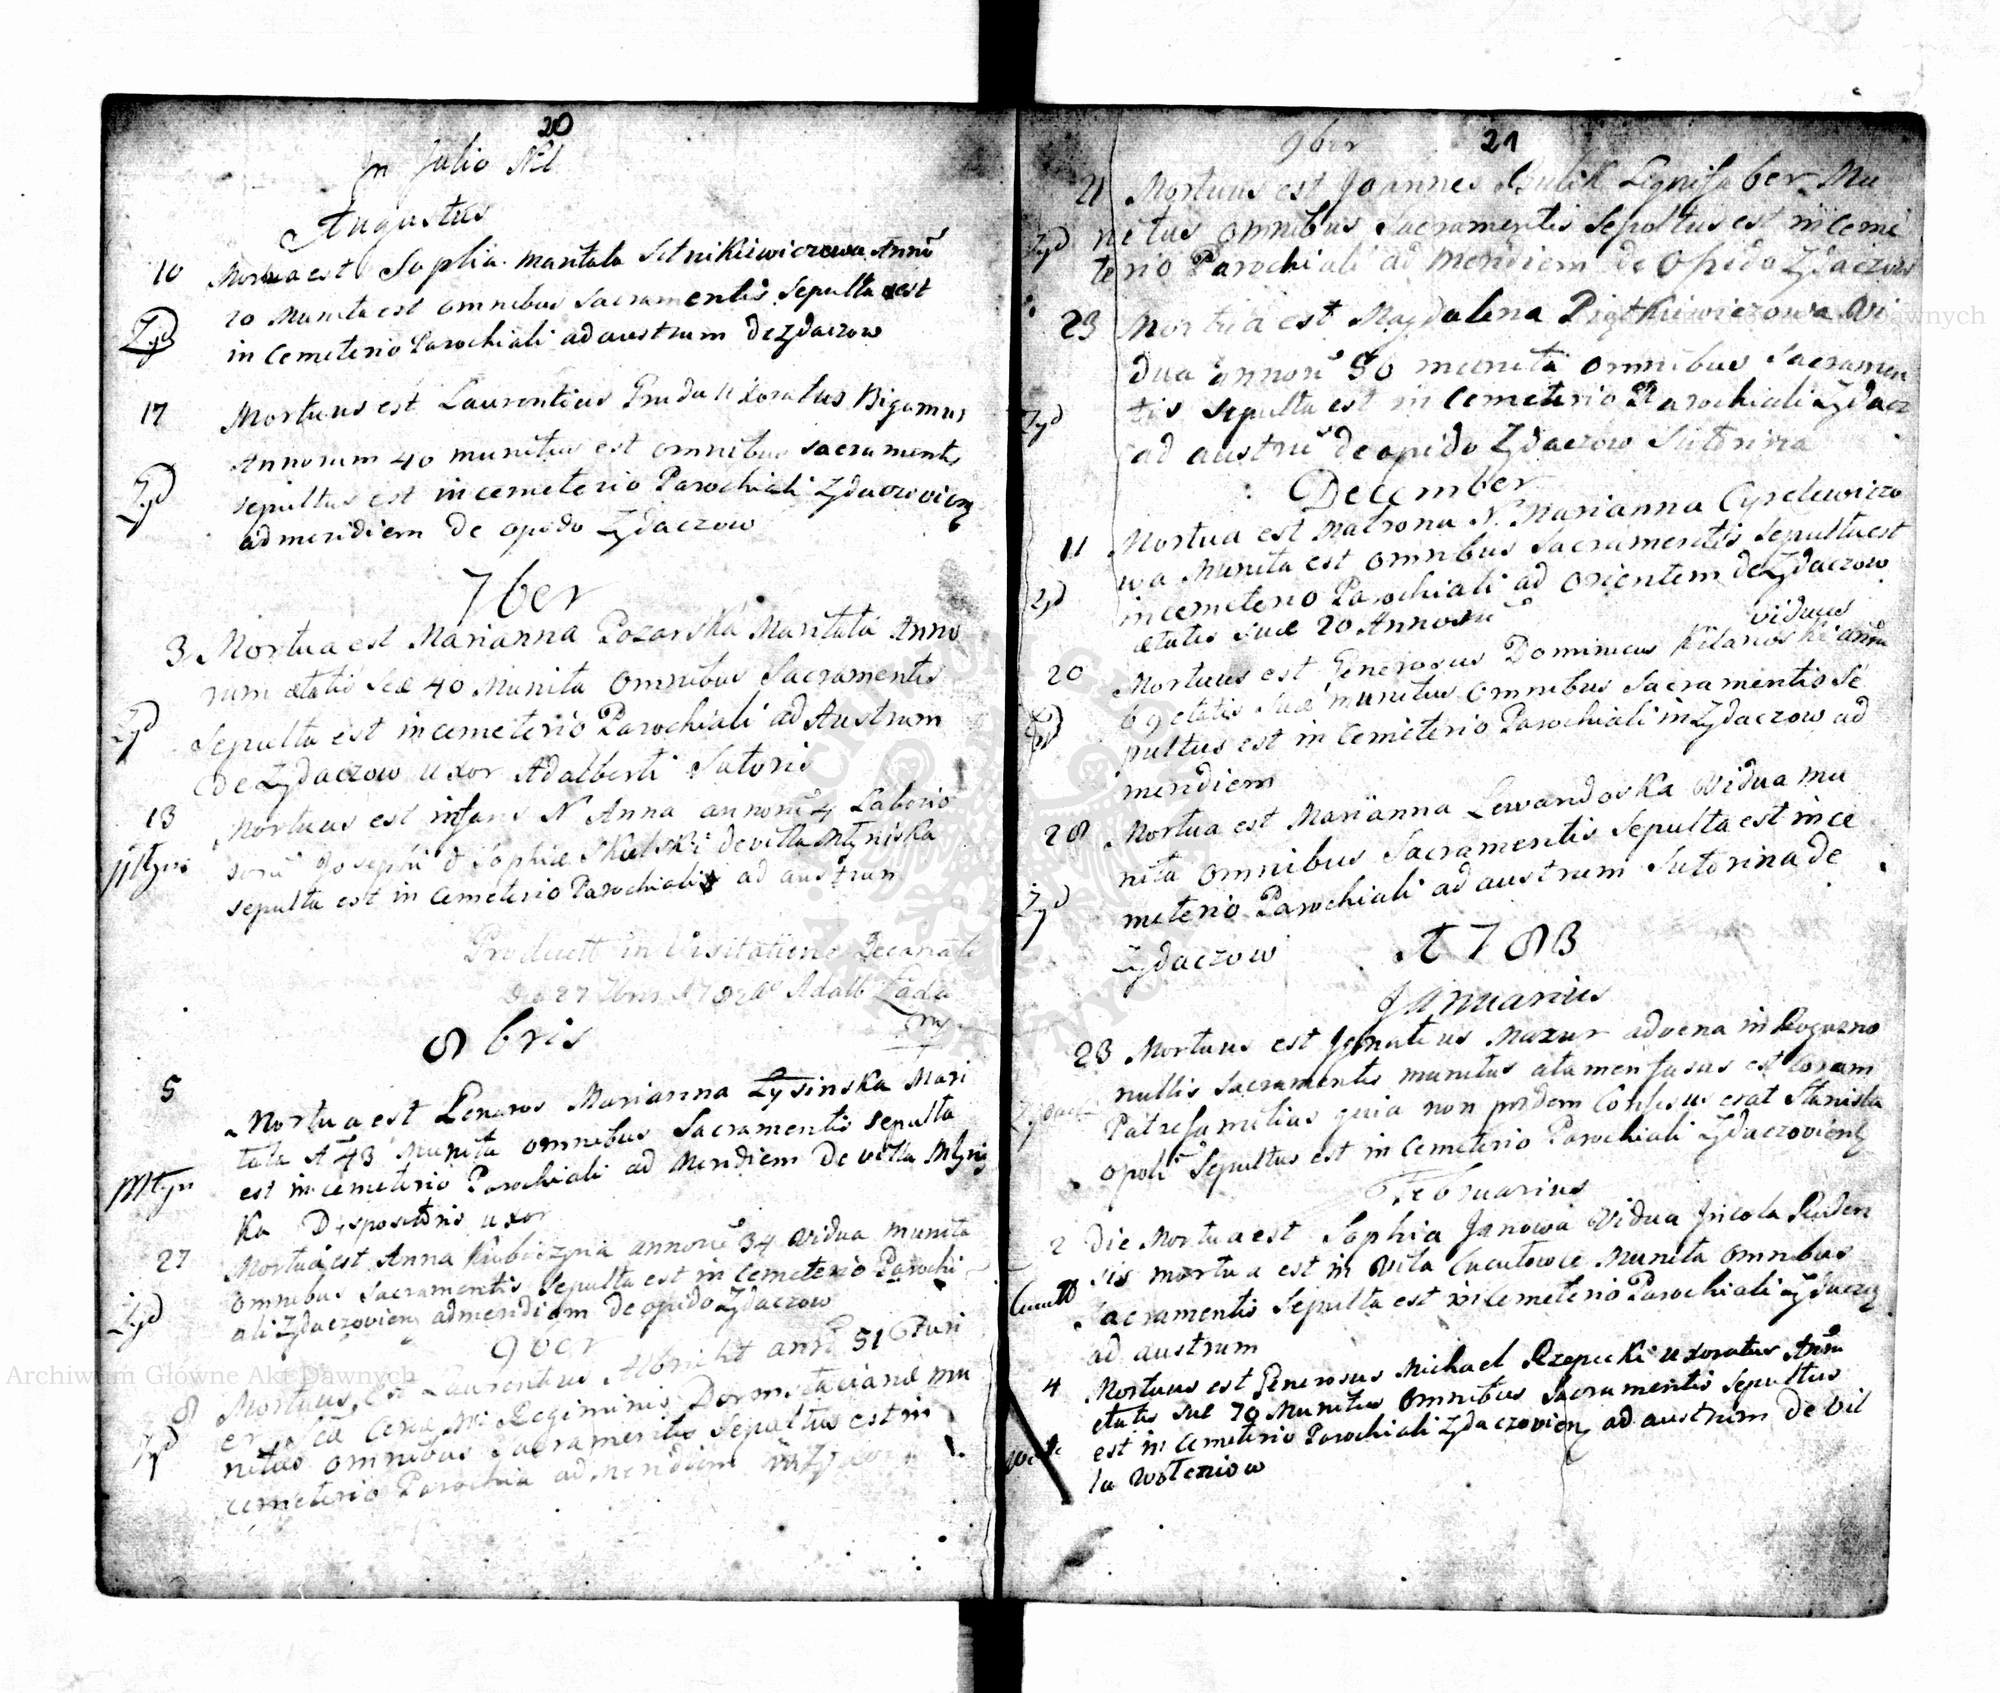 20
In Julio Nil
Augustus
10 Mortua est Sophia maritata Sitnikiewiczowa Annor̃
Zyd 20 Munita est omnibus Sacramentis Sepulta est
in Cemeterio Parochiali ad austrum de Zydaczow
17 Mortuus est Laurentius Gruda uxoratus Bigamus
Annorum 40 munitus est omnibus sacramentis
Zyd sepultus est in cemeterio Parochiali Zydaczovien
ad meridiem de opido Zydaczow
7ber
3 Mortua est Marianna Pozarska Maritata Anno
rum ætatis suæ 40 Munita Omnibus Sacramentis
Zyd Sepulta est in cemeterio Parochiali ad Austrum
de Zydaczow uxor Adalberti Sutoris
13 Mortuus est infans N Anna annorũ 4 Laborio
Młyn sorũ Josephi & Sophiæ Skalski de villa Młyniska
sepulta est in Cemeterio Parochiali ad austrum
Product in Visitatione Decanali
Die 27 7bris 1782 Adalb Lada
mp
8bris
5 Mortua est Generos Marianna Łysinska Mari
tata A 43 Munita omnibus Sacramentis sepulta
Młyn est in cemeterio Parochiali ad Meridiem de villa Młynis
ka Dispositoris uxor
27 Mortua est Anna Kubiczyna annorũ 34 vidua munita
omnibus sacramentis Sepulta est in Cemeterio Parochi
Zyd ali Zydaczovien ad meridiem de opido Zydaczow
9ber
8 Mortuus est Laurentius Albricht annõ 51
Regiminis mu
Zyd nitus omnibus sacramentis Sepultus est in
cemeterio Parochia ad meridiem in
21
9ber
21 Mortuus est Joannes Lignifaber Mu
Zyd nitus omnibus Sacramentis Sepultus est in Ceme
terio Parochiali ad Meridiem de Opido Zydaczow
23 Mortua est Magdalena Piątkiewiczowa Vi
dua annorũ 50 munita omnibus Sacramen
Zyd tis sepulta est in Cemeterio Parochiali Zydacz
ad austrũ de opido Zydaczow Sutorina
December
11 Mortua est Matrona N. Marianna Cyrelewiczo
wa Munita est omnibus Sacramentis Sepulta est
Zyd in cemeterio Parochiali ad orientem de Zydaczow
ætatis suæ 20 Annorũ
viduus
20 Mortuus est Generosus Dominicus Kilanoski annor
69 ætatis suæ munitus omnibus Sacramentis Se
Zyd pultus est in Cemeterio Parochiali in Zydaczow ad
meridiem
28 Mortua est Marianna Lewandoska Vidua mu
nita omnibus Sacramentis Sepulta est in ce
Zyd meterio Parochiali ad austrum Sutorina de
Zydaczow
A 1783
Januarius
23 Mortuus est Ignatius Mazur advena in Rogozno
nullis Sacramentis munitus atamen fasus est coram
Patrefamilias quia non pridem Confesus erat Stanisla
opoli Sepultus est in Cemeterio Parochiali Zydaczovien
Februarius
2 Die Mortua est Sophia Janowa Vidua Incola Ruden
sis mortua est in Villa Cucułowce Munita omnibus
Cucuł Sacramentis Sepulta est in Cemeterio Parochiali Zydacz
ad austrum
4 Mortuus est Generosus Michael Rzepecki uxoratus Annor
ætatis suæ 70 Munitus omnibus Sacramentis Sepultus
est in Cemeterio Parochiali Zydaczovien ad austrum de vil
la Wolcniow
Archiwum Główne Akt Dawnych